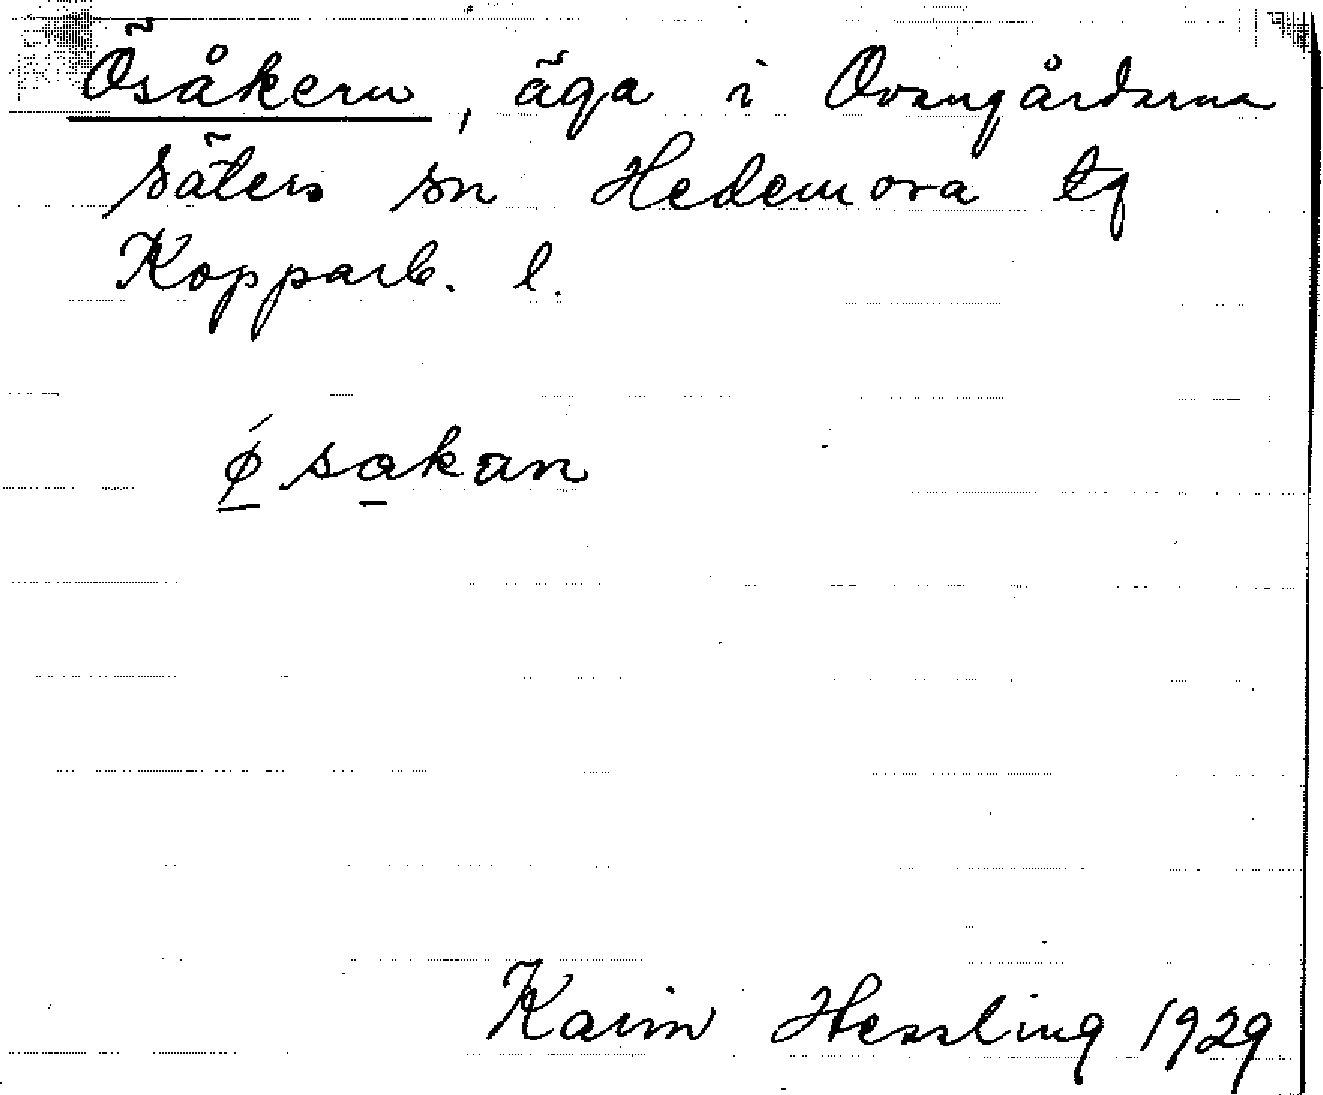 Ösåkern, äga i Ovangårdarna
Säters sn Hedemora tg
Kopparb. l.
ǿsakan
Karin Hessling 1929